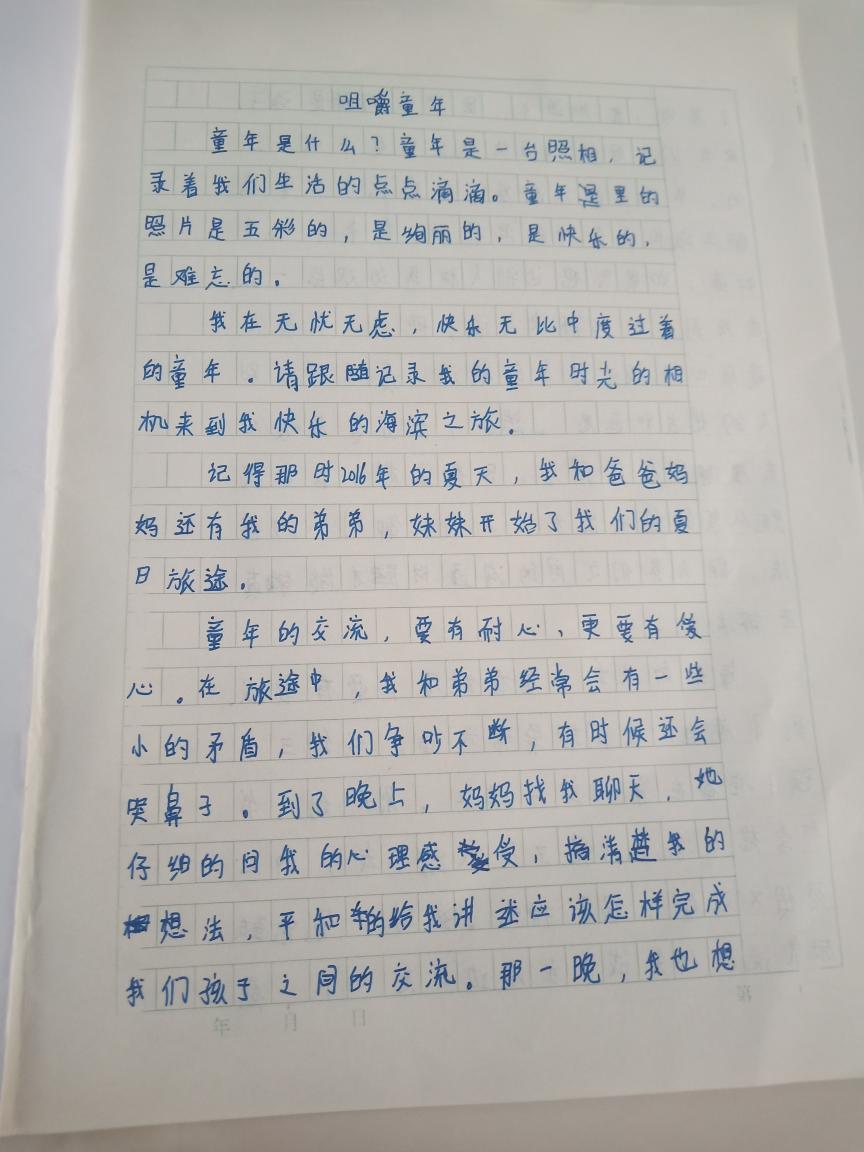 咀嚼童年
童年是什么?童年是一台照相,记
录着我们生活的点点滴滴。童年是里的
照片是五彩的,是绚丽的,是快乐的,
是难忘的。
我在无忧无虑,快乐无比中度过着
的童年。请跟随记录我的童年时光的相
机来到我快乐的海滨之旅。
记得那时2016年的夏天,我和爸爸妈
妈还有我的弟弟,妹妹开始了我们的夏
日旅途。
童年的交流,要有耐心、更要有爱
心。在旅途中,我和弟弟经常会有一些
小的矛盾,我们争吵不断,有时候还会
哭鼻子。到了晚上,妈妈找我聊天,她
仔细的问我的心理感受,搞清楚我的
想法,平和的给我讲述应该怎样完成
我们孩子之间的交流。那一晚,我也想
年 月 日